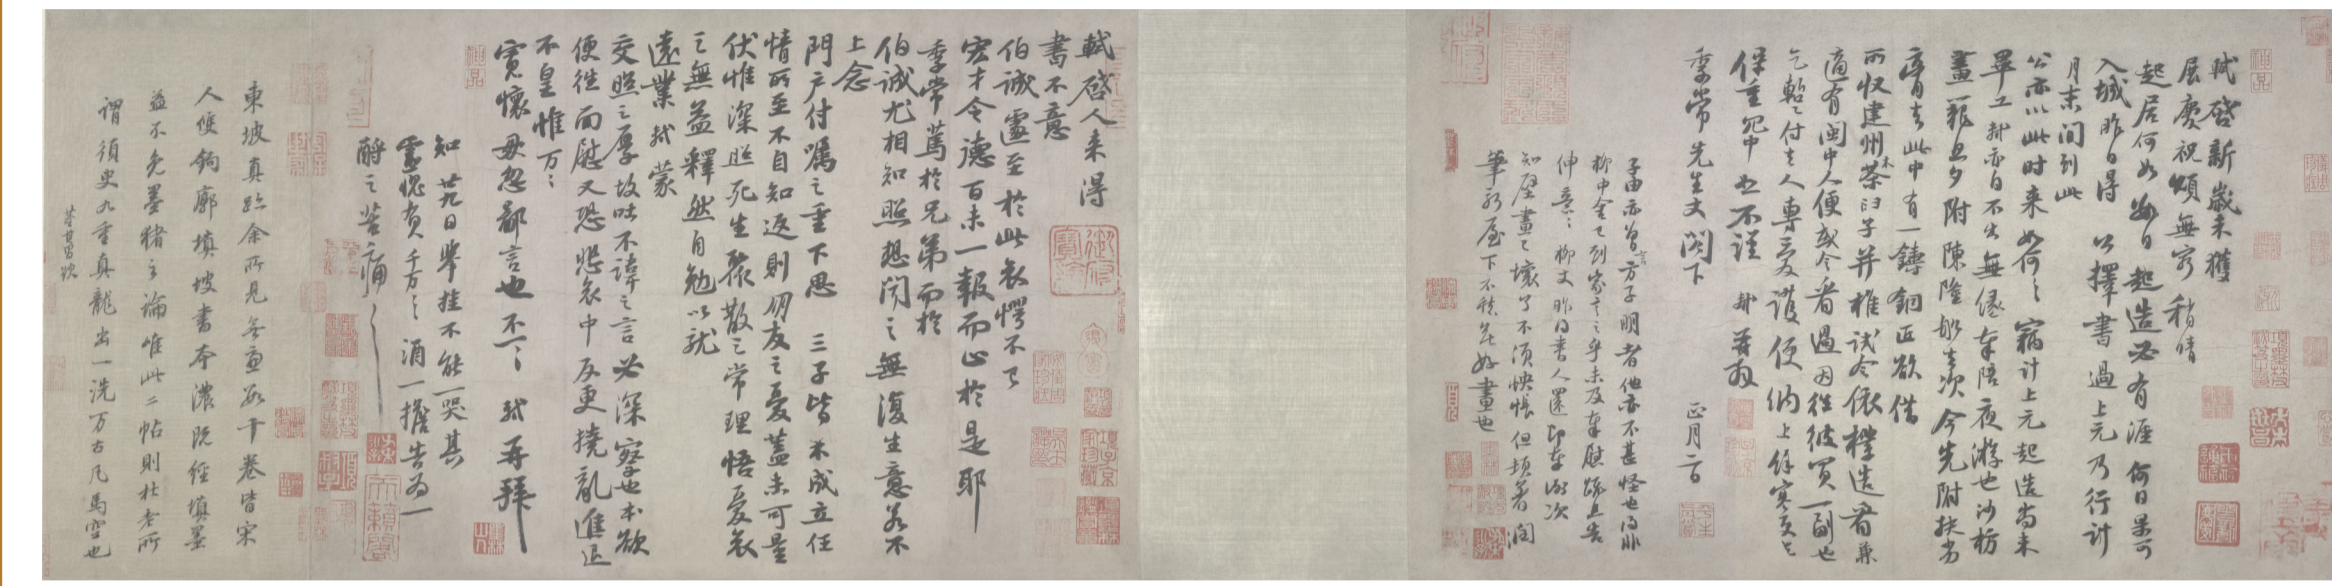 軾啓新歲未獲
展慶祝頌無窮稍晴
起居何如數日起造必有涯何日果可
入城昨日得公擇書過上元乃行計
月末間到此
公亦以此時來如何〻竊計上元起造尚未
畢工軾亦自不出無緣奉陪夜遊也沙枋
畫籠旦夕附陳隆船去次今先附扶劣
膏去此中有一鑄銅匠欲借
所收建州木茶臼子并椎試令依樣造看兼
適有閩中人便或令看過因往彼買一副也
乞暫付去人專愛護便納上餘寒更乞
保重冗中恕不謹 軾再拜
季常先生丈閤下 正月二日
子由亦曾言方子明者他亦不甚怪也得非
柳中舍已到家言之乎未及奉慰疏且告
伸意〻柳丈昨得書人還即奉謝次
知壁畫已壞了不須怏悵但頓著潤
筆新屋下不愁無好畫也
軾啓人來得
書不意
伯誠遽至於此哀愕不已
宏才令德百未一報而止於是耶
季常篤於兄弟而於
伯誠尤相知照想聞之無復生意若不
上念
門戶付囑之重下思 三子皆未成立任
情所至不自知返則朋友之憂蓋未可量
伏惟深照死生聚散之常理悟憂哀
之無益釋然自勉以就
遠業軾蒙
交照之厚故吐不諱之言必深察也本欲
便往面慰又恐悲哀中反更撓亂進退
不皇惟万〻
寬懷毋忽鄙言也不一〻 軾再拜
知廿九日舉挂不能一哭其
靈愧負千万〻酒一擔告為一
酹之苦痛〻
東坡真跡余所見無慮數十卷皆宋
人雙鉤廓填坡書本濃既經填墨
益不免墨豬之論唯此二帖則杜老所
謂須臾九重真龍出一洗万古凡馬空也
董其昌跋